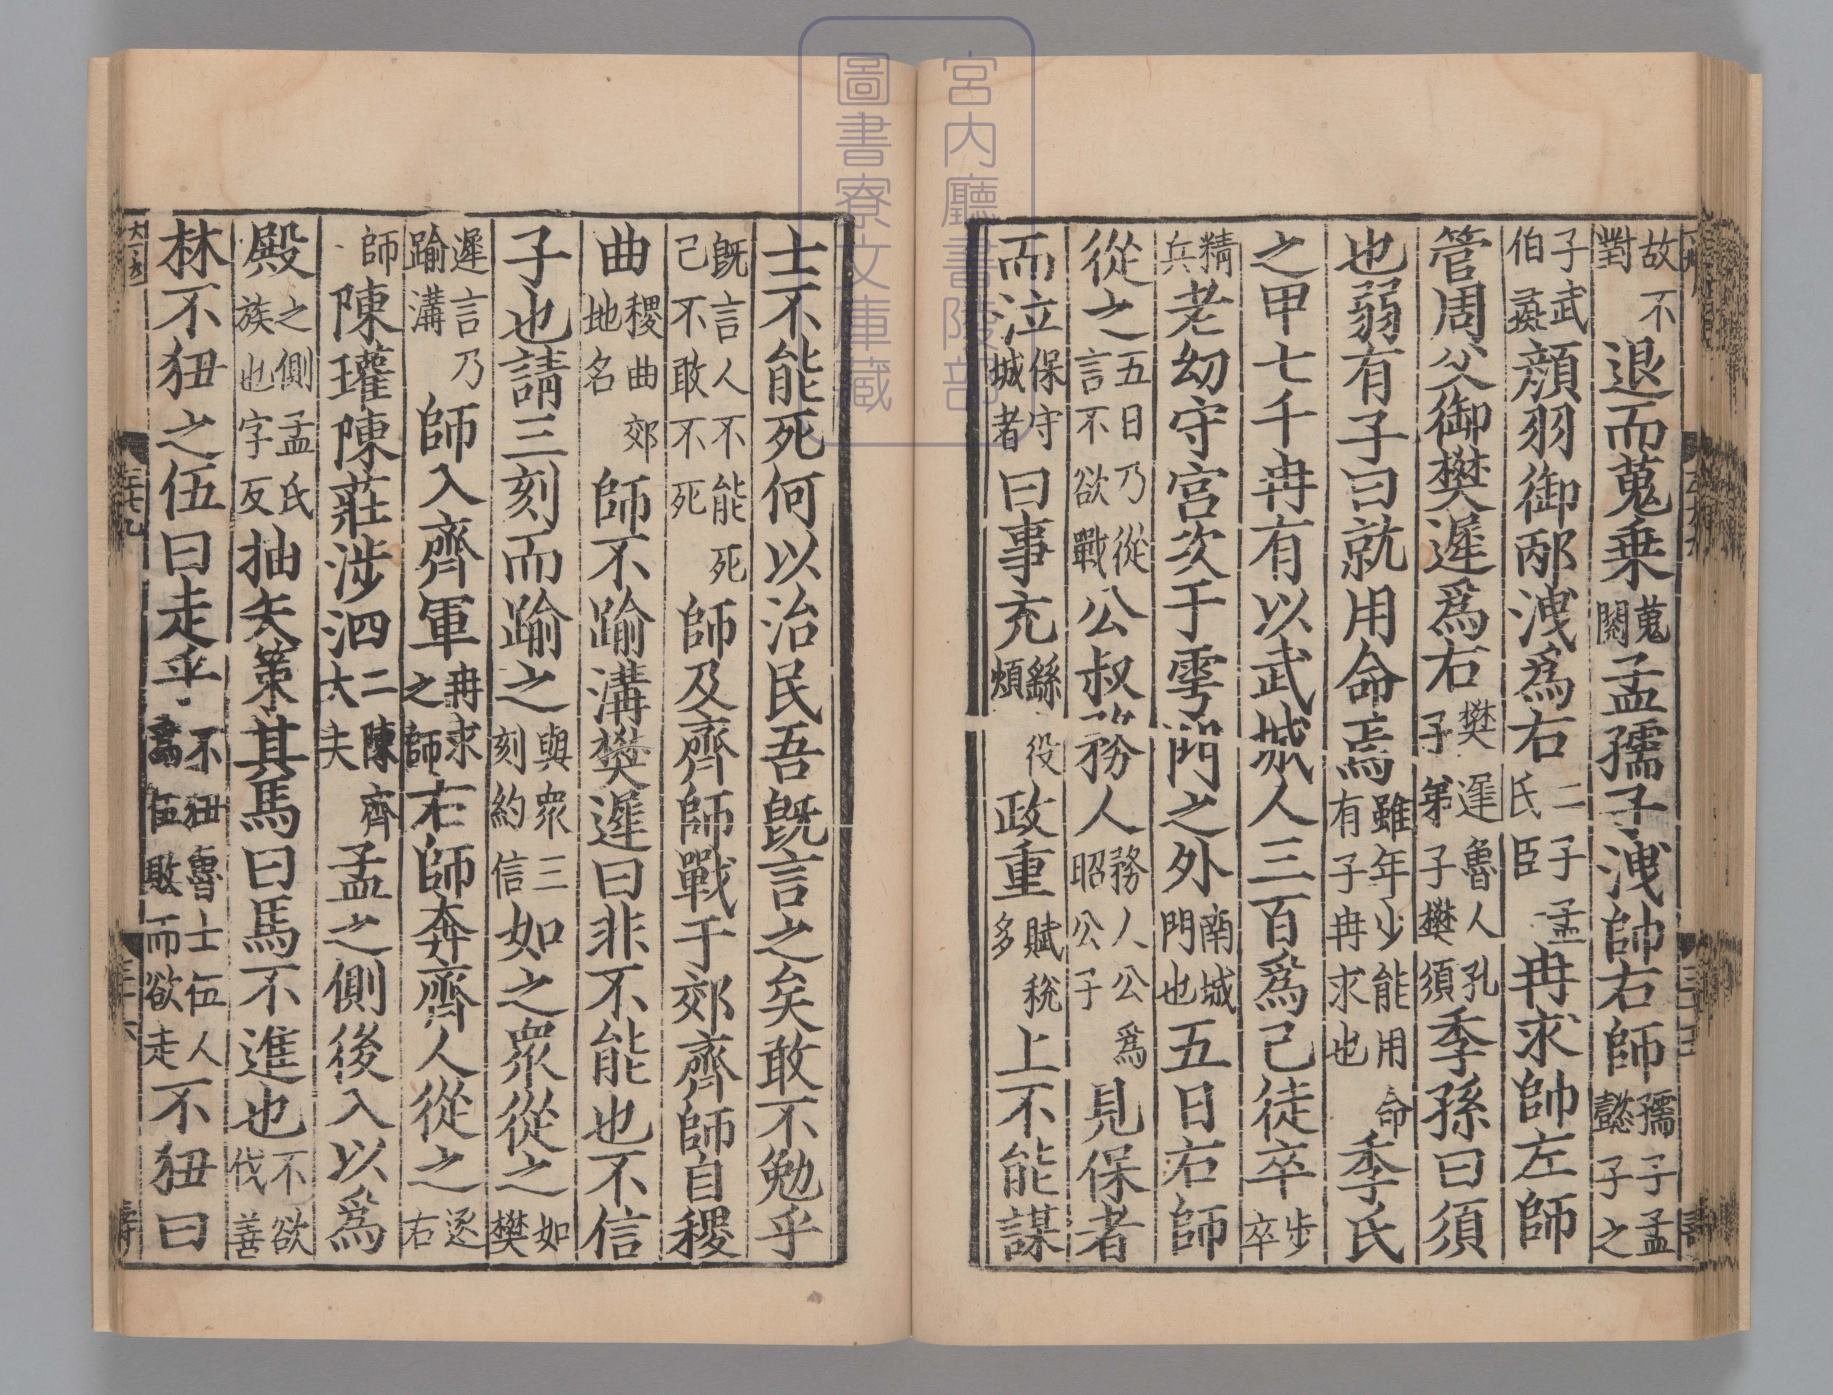 宮内廳書陵部
圖書寮文庫藏
故不對退而蒐乗蒐閱孟孺子洩帥右師孺子孟懿子之
子武伯彘顔羽御邴洩爲右二子孟氏臣冉求帥左師
管周父御樊遲爲右樊遲魯人孔子弟子樊須季孫曰須
也弱有子曰就用命焉雖年少能用命有子冉求也季氏
之甲七千冉有以武城人三百爲己徒卒步卒
精兵老幼守宮次于雩門之外南城門也五日右師
從之五日乃從言不欲戰公叔務人務人公爲昭公子見保者
而泣保守城者曰事充繇役煩政重賦稅多上不能謀
士不能死何以治民吾既言之矣敢不勉乎
既言人不能死己不敢不死師及齊師戰于郊齊師自稷
曲稷曲郊地名師不踰溝樊遲曰非不能也不信
子也請三刻而踰之與衆三刻約信如之衆從之如樊
遲言乃踰溝師入齊軍冉求之師右師奔齊人從之逐右
師陳瓘陳莊涉泗二陳齊大夫孟之側後入以爲
殿之側孟氏族也字反抽矢策其馬曰馬不進也不欲伐善
林不狃之伍曰走乎不狃魯士伍人爲伍敗而欲走不狃曰